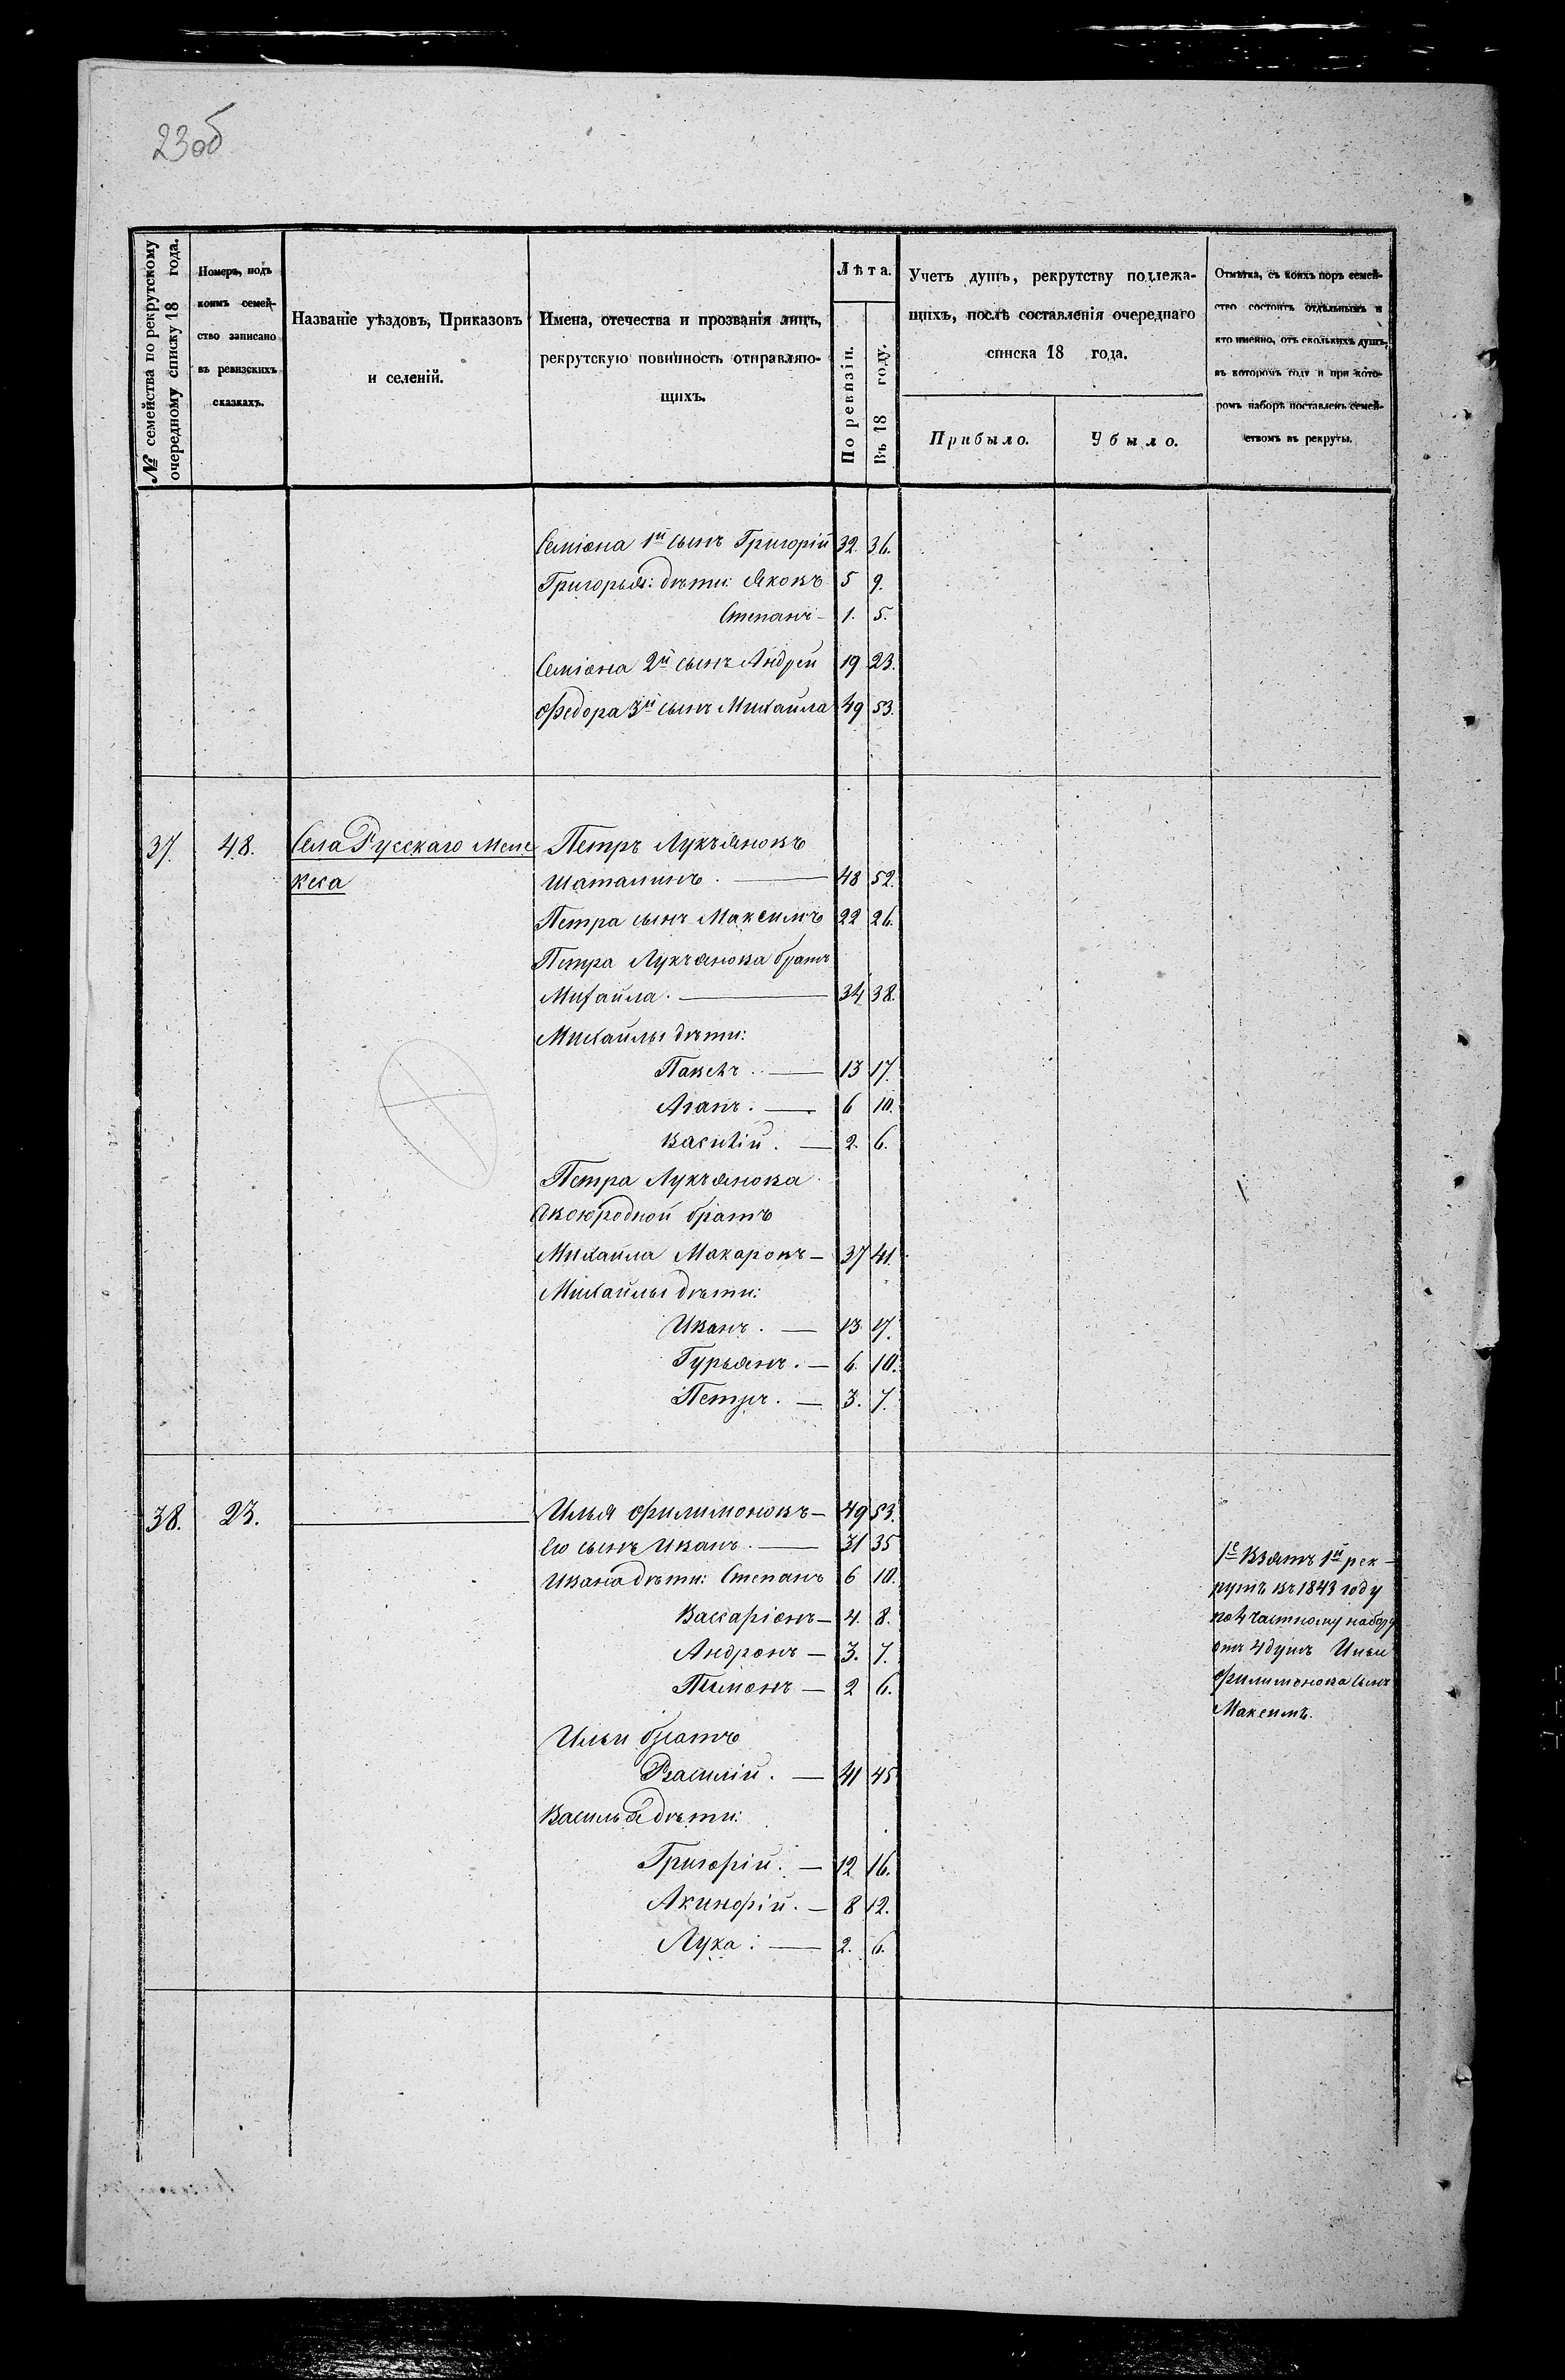 23об
№ семейства по рекрутскому
очередному списку 18 года.
Номеръ, подъ
коимъ семей-
ство записано
въ ревизскихъ
сказкахъ.
Названіе уѣздовъ, Приказовъ
и селеній.
Имена, отечества и прозванія лицъ,
рекрутскую повинность отправляю-
щихъ.
Лѣта.
По ревизіи.
Въ 18 году.
Учетъ душъ, рекрутству подлежа-
щихъ, послѣ составленія очереднаго
списка 18 года.
Прибыло.
Убыло.
Отмѣтка, съ коихъ поръ семей-
ство состоитъ отдѣльнымъ и
кто именно, отъ сколькихъ душъ,
въ которомъ году и при кото-
ромъ наборѣ поставленъ семей-
ствомъ въ рекруты.
Семіона 1й сынъ Григорій 32. 36.
Григорья: дѣти: Яковъ 5 9.
Степанъ — 1. 5.
Семіона 2й сынъ Андрей 19 23.
Федора 3й сынъ Михайла 49 53.
37. 48. Села Русскаго Меле Петръ Лукъяновъ
кеса Шаталинъ. — 48 52.
Петра сынъ Максимъ 22 26.
Петра Лукъянова братъ
Михайла. — 34 38.
Михайлы дѣти:
Павелъ. — 13 17.
— 6 10.
Василій. — 2. 6.
Петра Лукъянова
двоюродной братъ
Михайла Макаровъ — 37 41.
Михайлы дѣти:
Иванъ. — 13. 17.
Гурьянъ. — 6. 10.
Петръ. — 3. 7.
38. 23. — Илья Филимоновъ — 49 53.
Его сынъ Иванъ. — 31 35
Ивана дѣти: Степанъ 6 10.
Вассаріонъ — 4. 8.
Андронъ — 3. 7.
Пимонъ — 2 6.
Ильи братъ
Василій. — 41 45
Василья дѣти:
Григорій. — 12 16.
Акинфій. — 8 12.
Лука: — 2. 6.
1е Взятъ 1й рек-
рутъ въ 1843 году
по 4 частному набору
отъ 4 душъ Ильи
Филимонова сынъ
Максимъ.